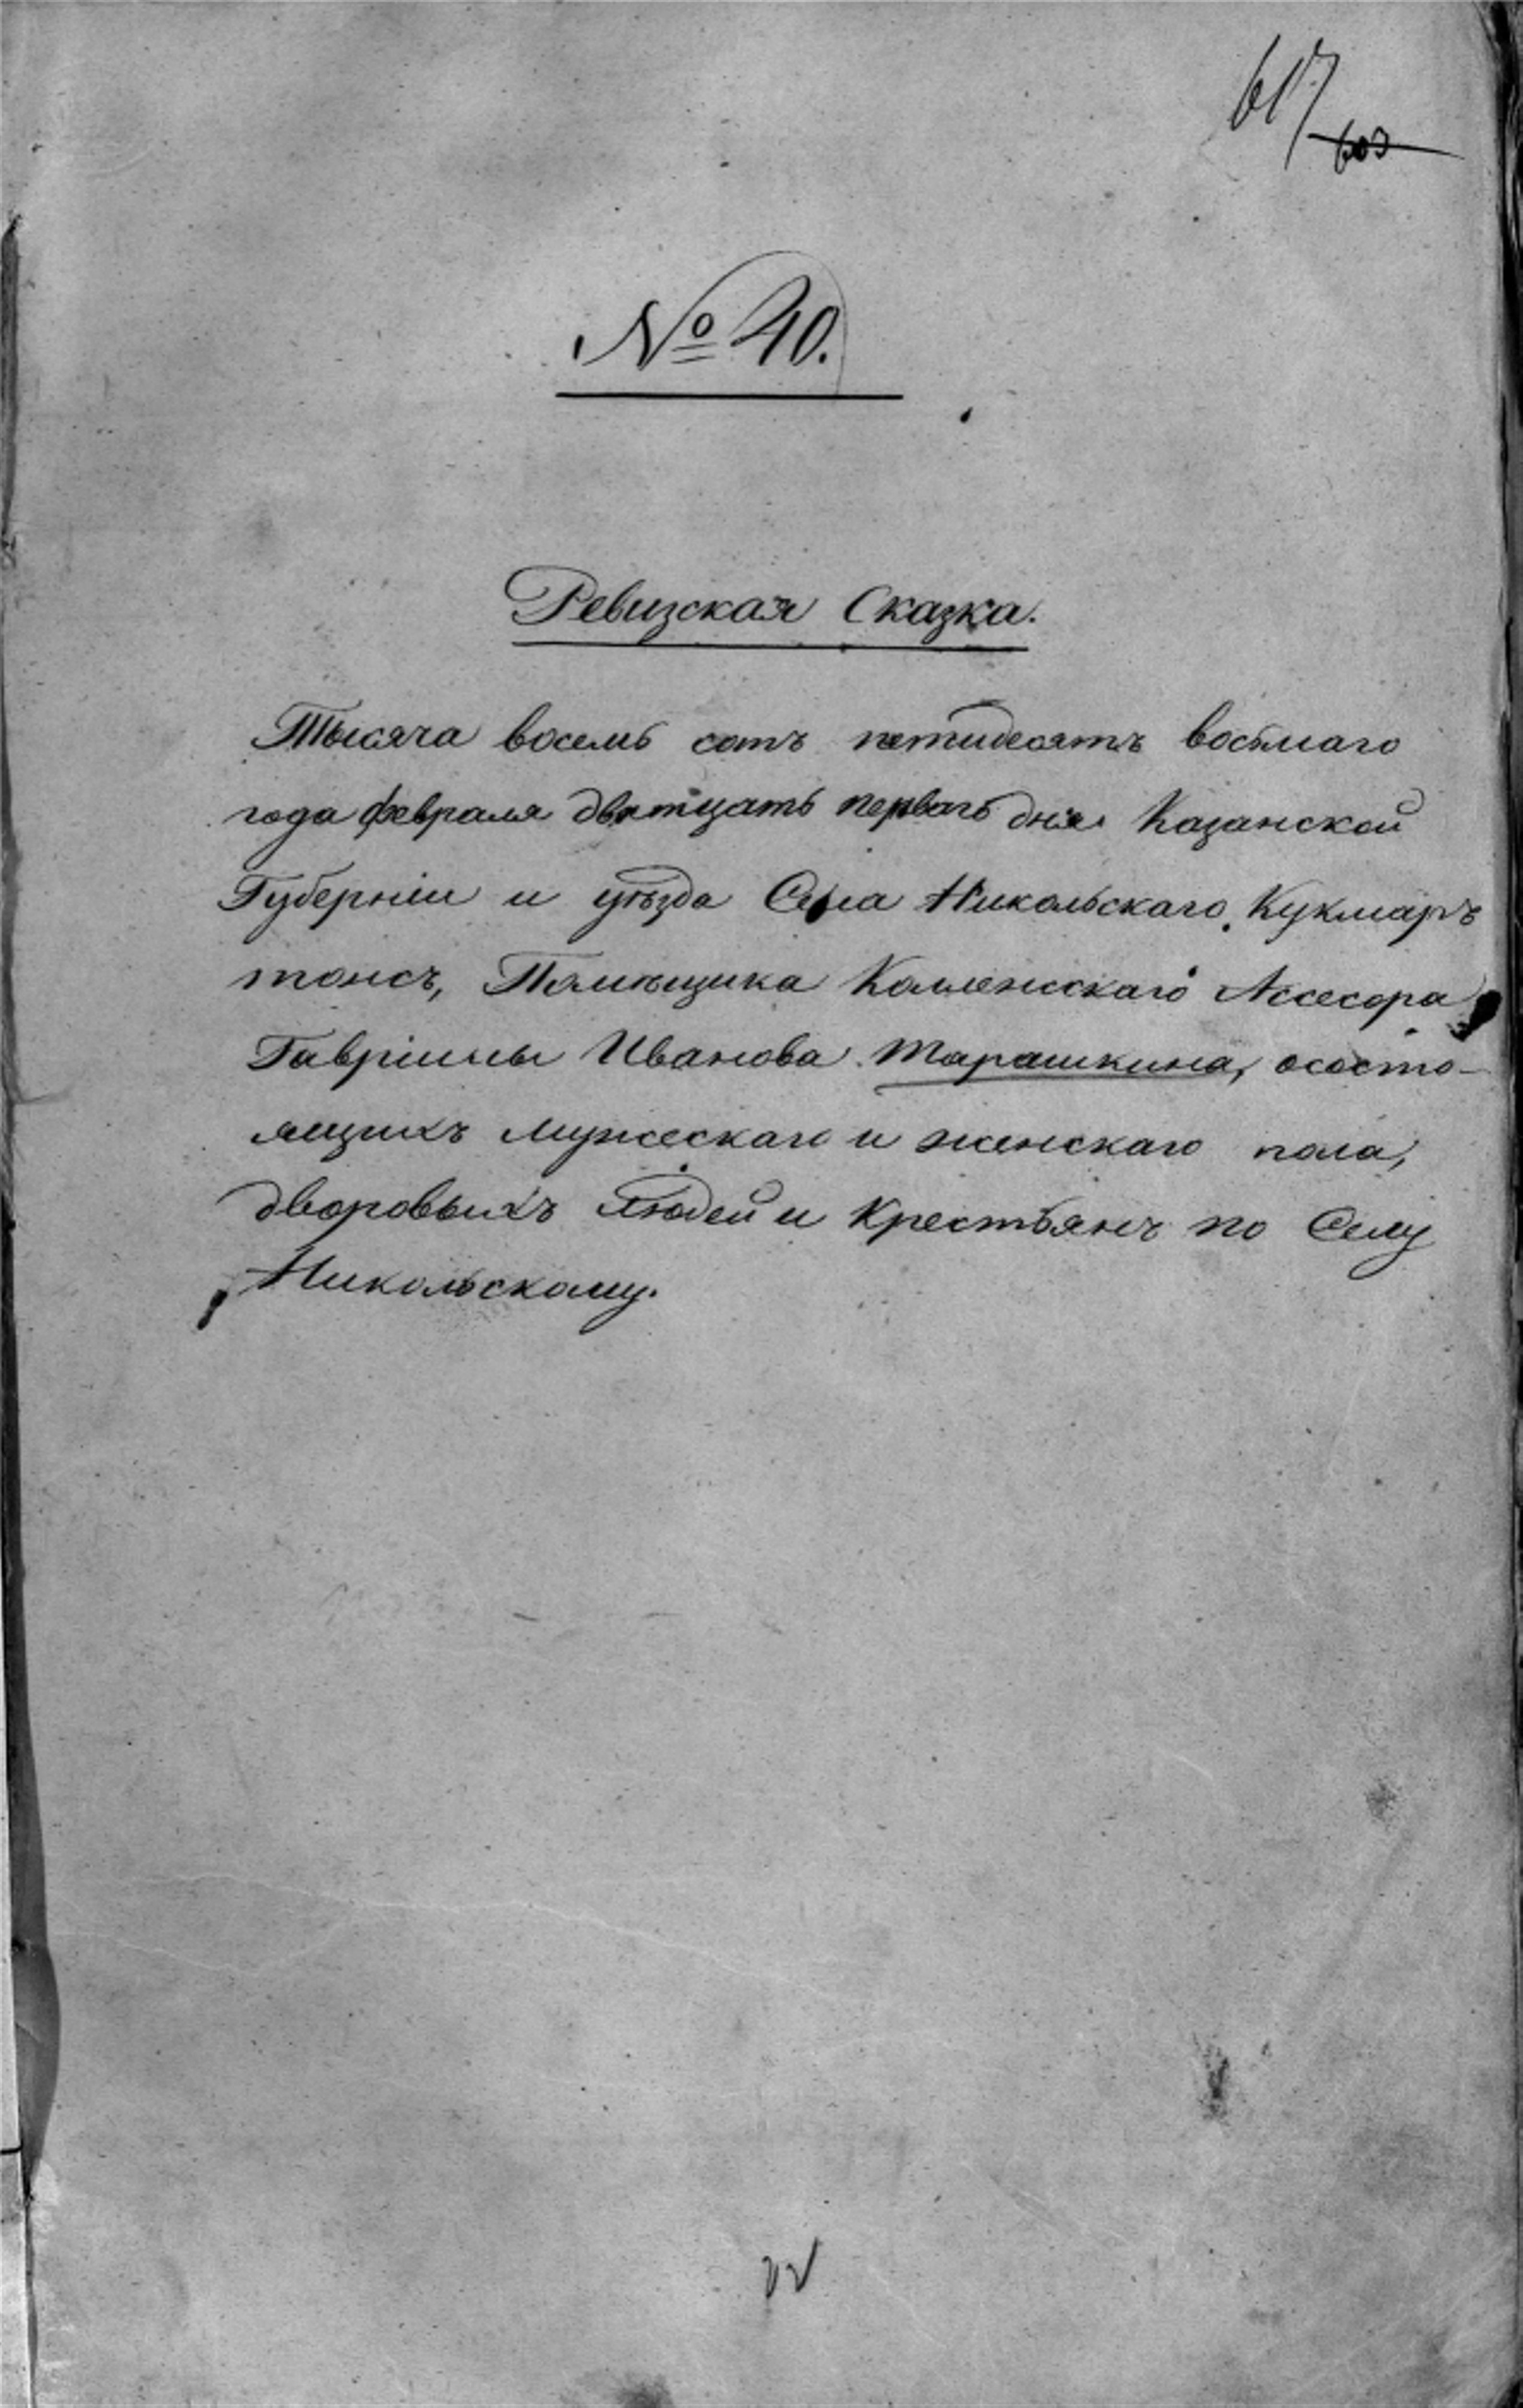 617
603
№ 40.
Ревизская Сказка.
Тысяча восемь сотъ петидесятъ восьмаго
года февраля двятцать перваго дня Казанской
Губерніи и уѣзда Села Никольскаго, Кукмаръ
тожъ, Помѣщика Коллежскаго Ассесора
Гавріилы Иванова Тарашкина, ососто-
ящихъ мужескаго и женскаго пола,
дворовыхъ людей и Крестьянъ по Селу
Никольскому.